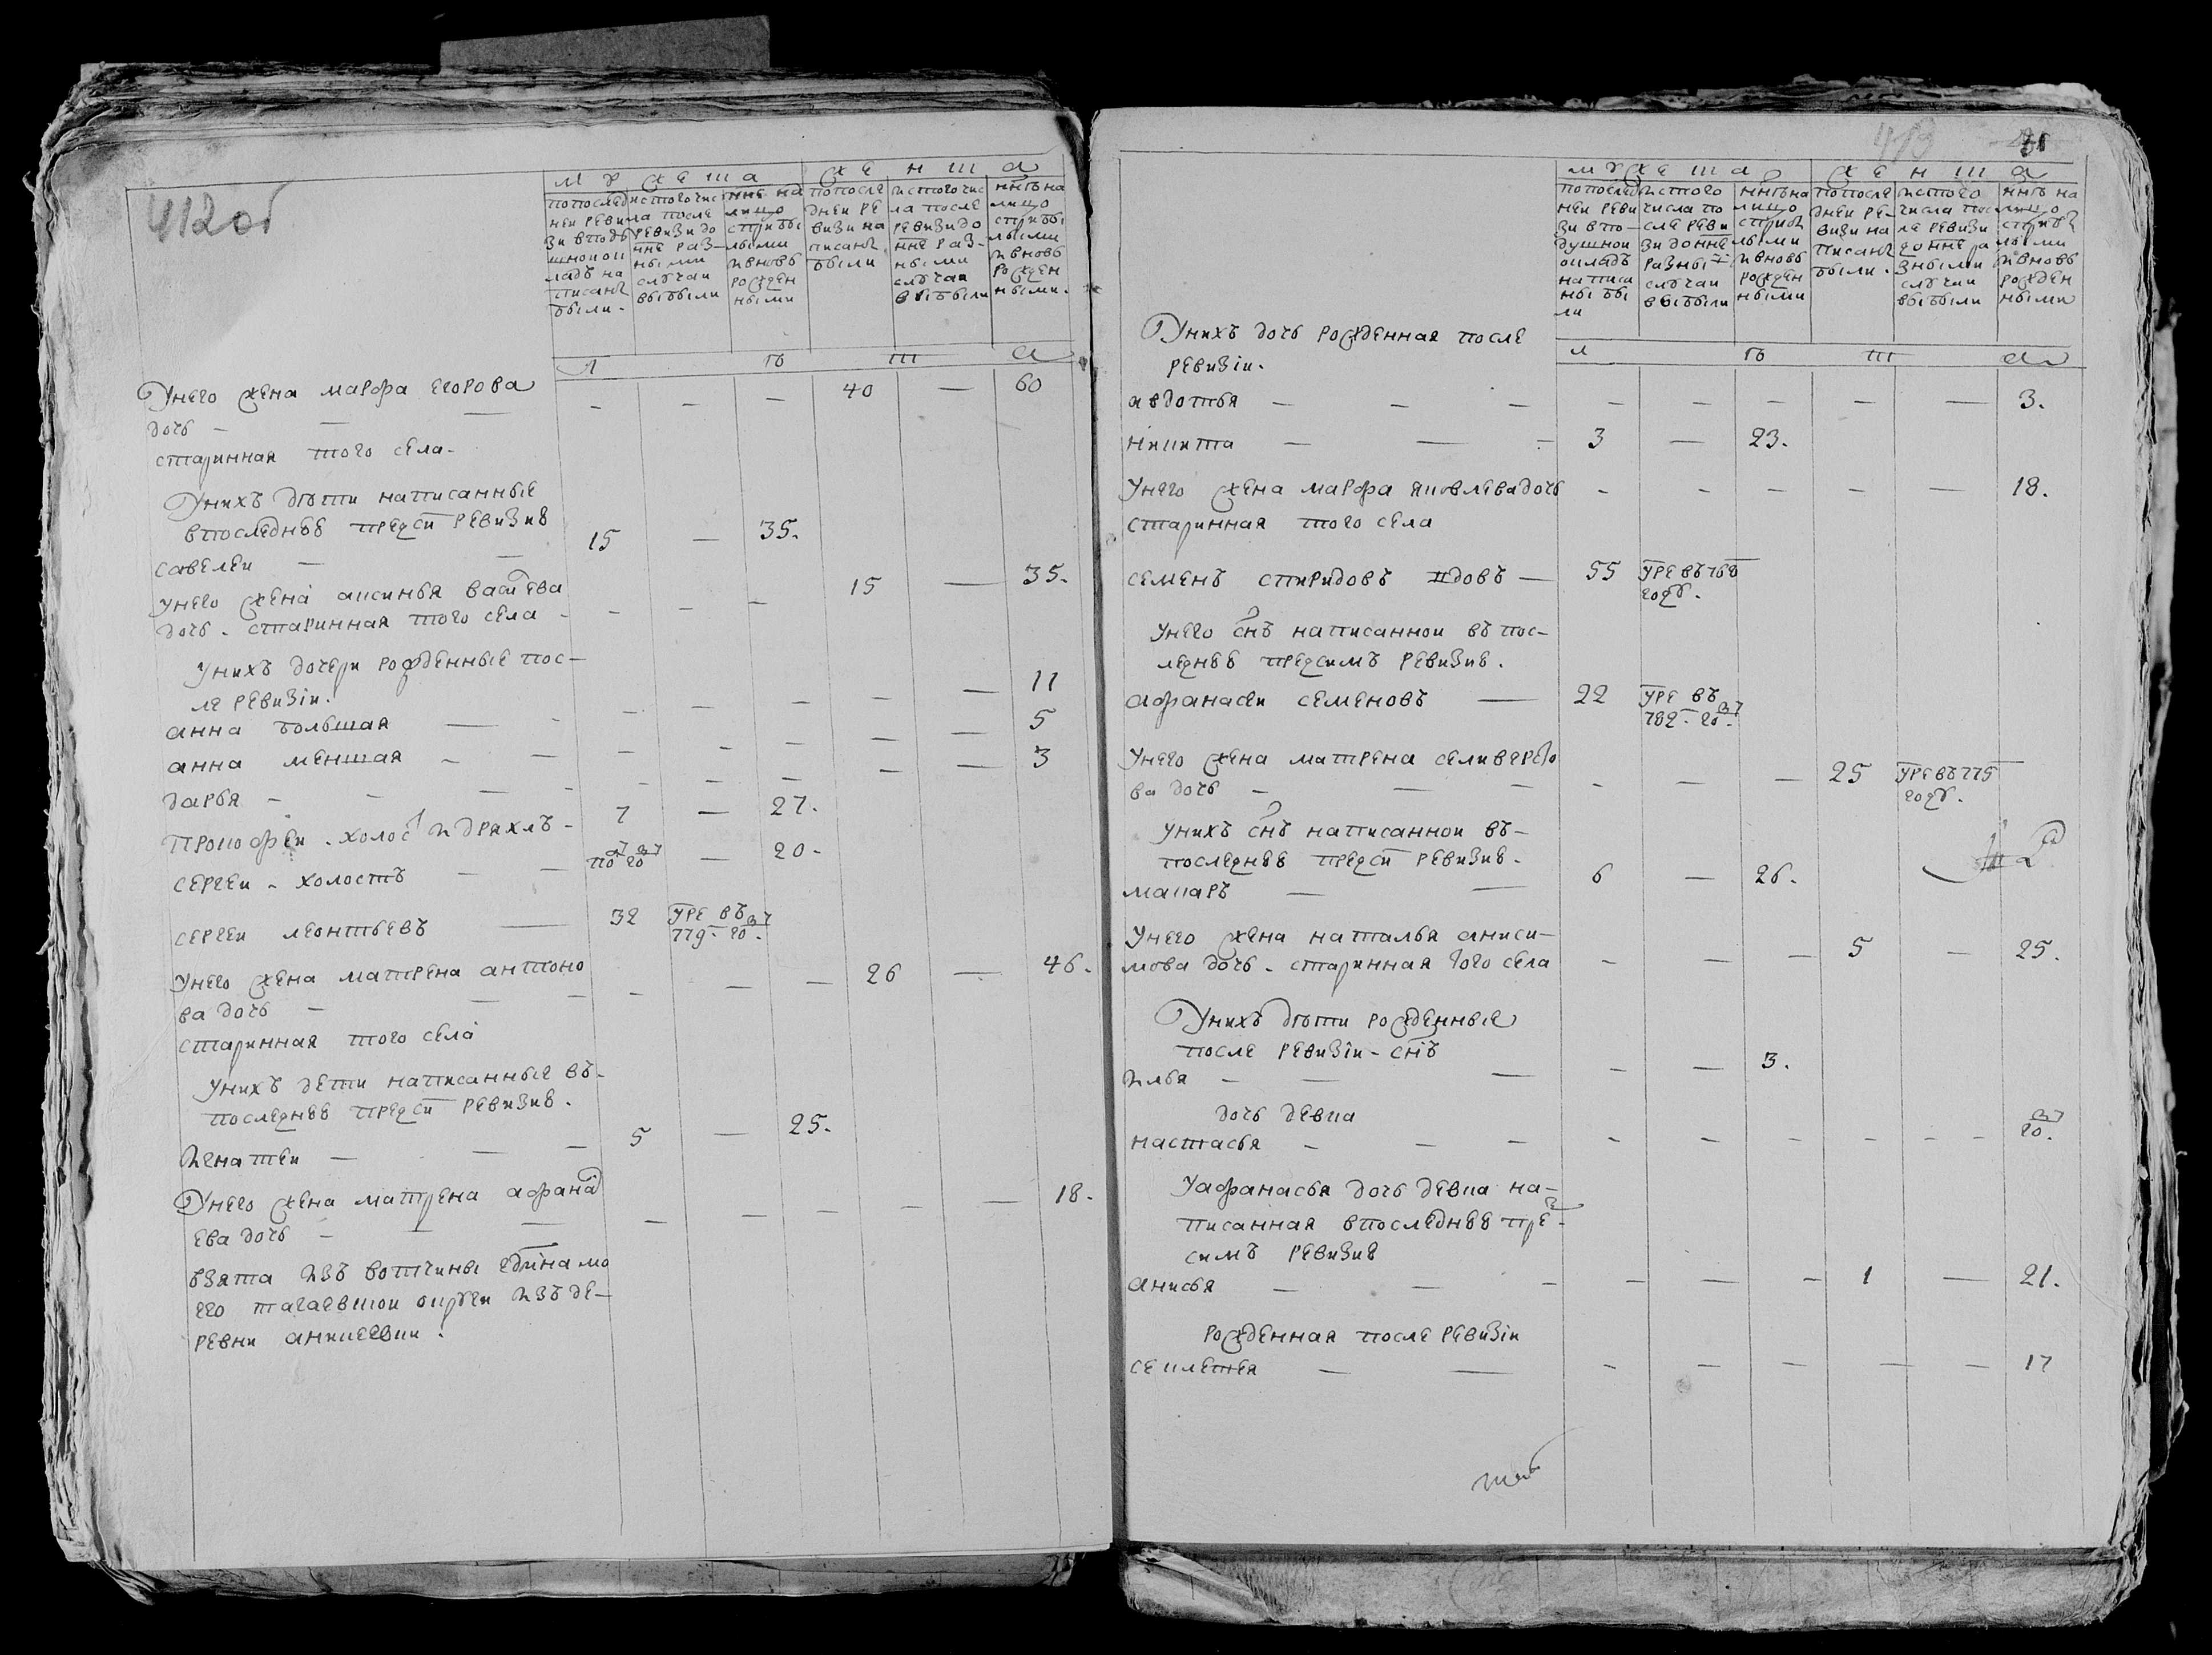 412об
мужеска женска
по последней ревизи в подушной окладъ написаны были.
ис того числа после ревизи до ныне разными случаи выбыли
ныне на лицо с прибылыми и вновь рожденными
по последней ревизи написаны были
ис того числа после ревизи до ныне разными случаи выбыли
ныне на лицо с прибылыми и вновь рожденными.
л ѣ т а
Унего жена марфа егорова
дочь - — — - — — 40 — 60
старинная того села.
Унихъ дѣти написанные
впоследнѣе предсй ревизиѣ
савелеи — — 15 — 35.
унего жена аксинья васильева
дочь. старинная того села - - — — 15 — 35.
Унихъ дочери рожденные пос-
ле ревизіи.
анна большая — - - — — — — 11
анна меншая - — - - — — — 5
дарья - - — - — — - — 3
Прокофеи. холос и дряхлъ - 7 — 27.
сергеи - холостъ - — по го — 20-
сергеи леонтьевъ — 32 уре въ 779-го.
Унего жена матрена антоно
ва дочь - — — - — — 26 — 46.
старинная того села
Унихъ дети написанные въ-
последнѣе предсй ревизиѣ.
игнатеи — — — 5 — 25.
Унего жена матрена афанас
ева дочь - — — — — — - — 18.
взята изъ вотчины едина мо
его тагаевскои округи изъ де-
ревни аникеевки.
413 31
мужеска женска
по последней ревизи в подушной окладъ написаны были
ис того числа после ревизи до ныне разными случаи выбыли
ныне на лицо с прибылыми и вновь рожденными
по последней ревизи написаны были.
ис того числа после ревизи до ныне разными случаи выбыли
ныне на лицо с прибылыми и вновь рожденными
л ѣ т а
Унихъ дочь рожденная после
ревизіи.
авдотья — — — — — — — — 3.
никита — — - 3 — 23.
Унего жена марфа яковлева дочь - - — - — 18.
старинная того села
семенъ спиридовъ вдовъ — 55 уре въ 768 году.
Унего снъ написаннои въ пос-
леднѣе предсимъ ревизиѣ.
афанасеи семеновъ — 22 уре въ 782-го.
Унего жена матрена селиверсто
ва дочь - — — - — — 25 уре въ 775 году.
Унихъ снъ написаннои въ-
последнѣе предсй ревизиѣ.
макаръ — — 6 — 26.
Унего жена наталья аниси-
мова дочь. старинная того села - — — 5 — 25.
Унихъ дѣти рожденные
после ревизіи - снъ
илья - — — - — 3.
дочь девка
настасья - — - - — - - - - го.
Уафанасья дочь девка на-
писанная впоследнѣе пре-
симъ ревизиѣ
анисья — — - - — - 1 — 21.
рожденная после ревизіи
секлетея — — - — — — — 17